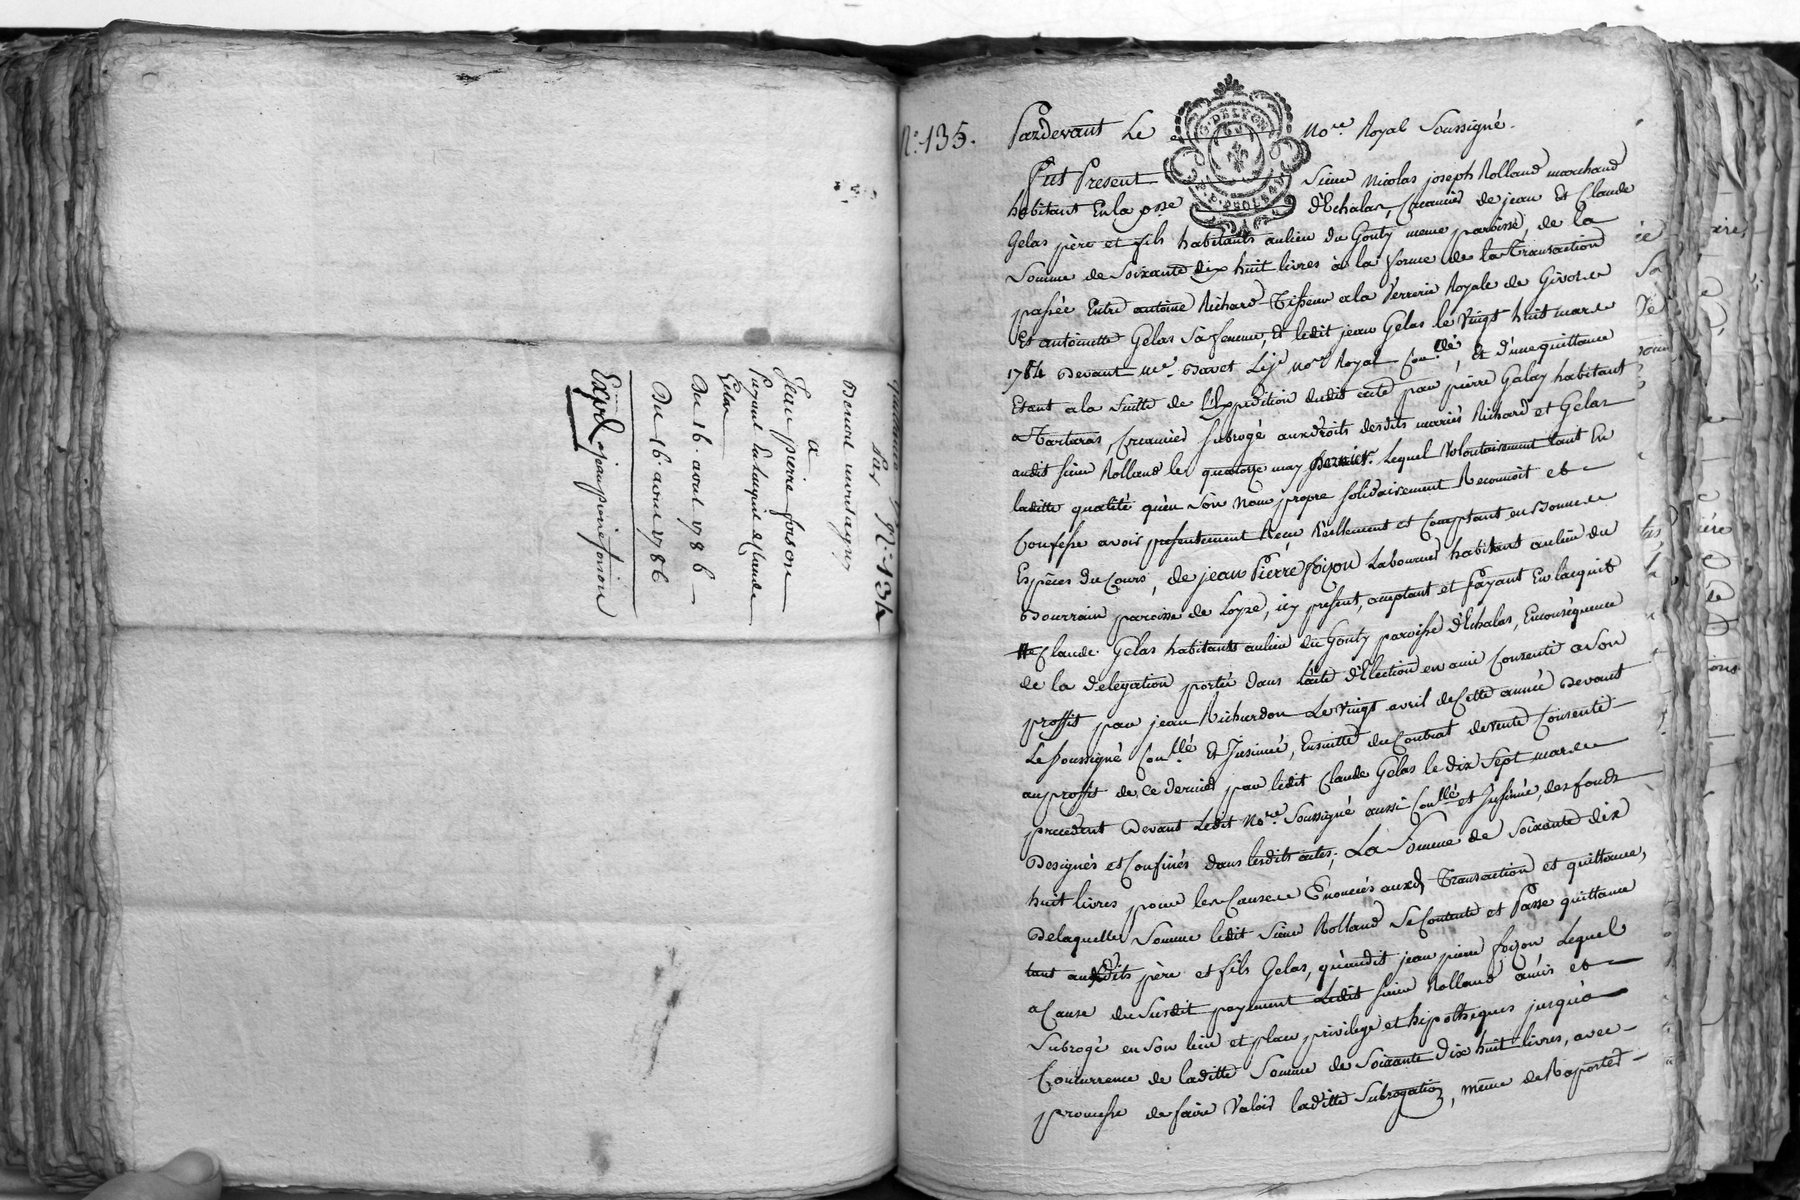 quittance N.o 134
Par
Benoit montagny
a
Jean pierre foison
Payant En lacquit de Claude
Gelas
Du 16. avril 1786
Du 16 avril 1786
Expd. jean pierre foison
N.o 135. Pardevant Le No.re Royal Soussigné.
G. DE LYON
Fut Present Sieur Nicolas joseph Rolland marchand
habitant En la psse d'Echalas, Creancier de jean Et Claude
Gelas père et fils habitants au lieu du Gouty meme paroisse, de la
Somme de Soixante dix huit livres à la forme de la Transaction
passée Entre antoine Richard Tisseur a la Verrerie Royale de Givors
Et antoinette Gelas Sa femme, Et ledit jean Gelas le Vingt huit mars
1784 Devant me. Davet No.re Royal Con.llé, Et d'une quittance
Etant a la Suitte de l'Expedition dudit acte par pierre Galay habitant
a Tartaras, Creancier Subrogé aux droits desdits mariés Richard et Gelas
audit sieur Rolland le quatorze may dernier. Lequel Volontairement tant En
laditte qualité qu'en Son Nom propre Solidairement Reconnoit et
Confesse avoir presentement Reçu Réellement et Comptant en Bonnes
Espèces du Cours, de jean Pierre foizon Laboureur habitant au lieu du
Bourrain paroisse de Loyre, icy present, acceptant et payant En lacquit
de Claude Gelas habitant au lieu du Gouty paroisse d'Echalas, En consequence
de la delegation portée dans l'acte d'Election en ami Consenti a Son
proffit par jean Richardon Le vingt avril de Cette année Devant
Le Soussigné Con.llé Et Insinué, Ensuitte du Contrat de vente Consenti
au proffit de ce dernier par ledit Claude Gelas le dix Sept mars
precedent Devant Ledit No.re Soussigné aussi Con.llé et Insinué, des fonds
Designés et Confinés dans lesdits actes; La Somme de Soixante dix
huit livres pour les Causes Enoncés auxd. Transaction et quittance,
De laquelle Somme ledit Sieur Rolland Se Contente et Passe quittance
tant auxdits père et fils Gelas, qu'audit jean pierre foizon Lequel
a Cause du Susdit payement Ledit Sieur Rolland a mis et
Subrogé en Son lieu et place privilege et hipotheques jusqu'a
Concurrence de laditte Somme de Soixante Dix huit livres, avec
promesse de faire Valoir laditte Subrogation, même de Raporter